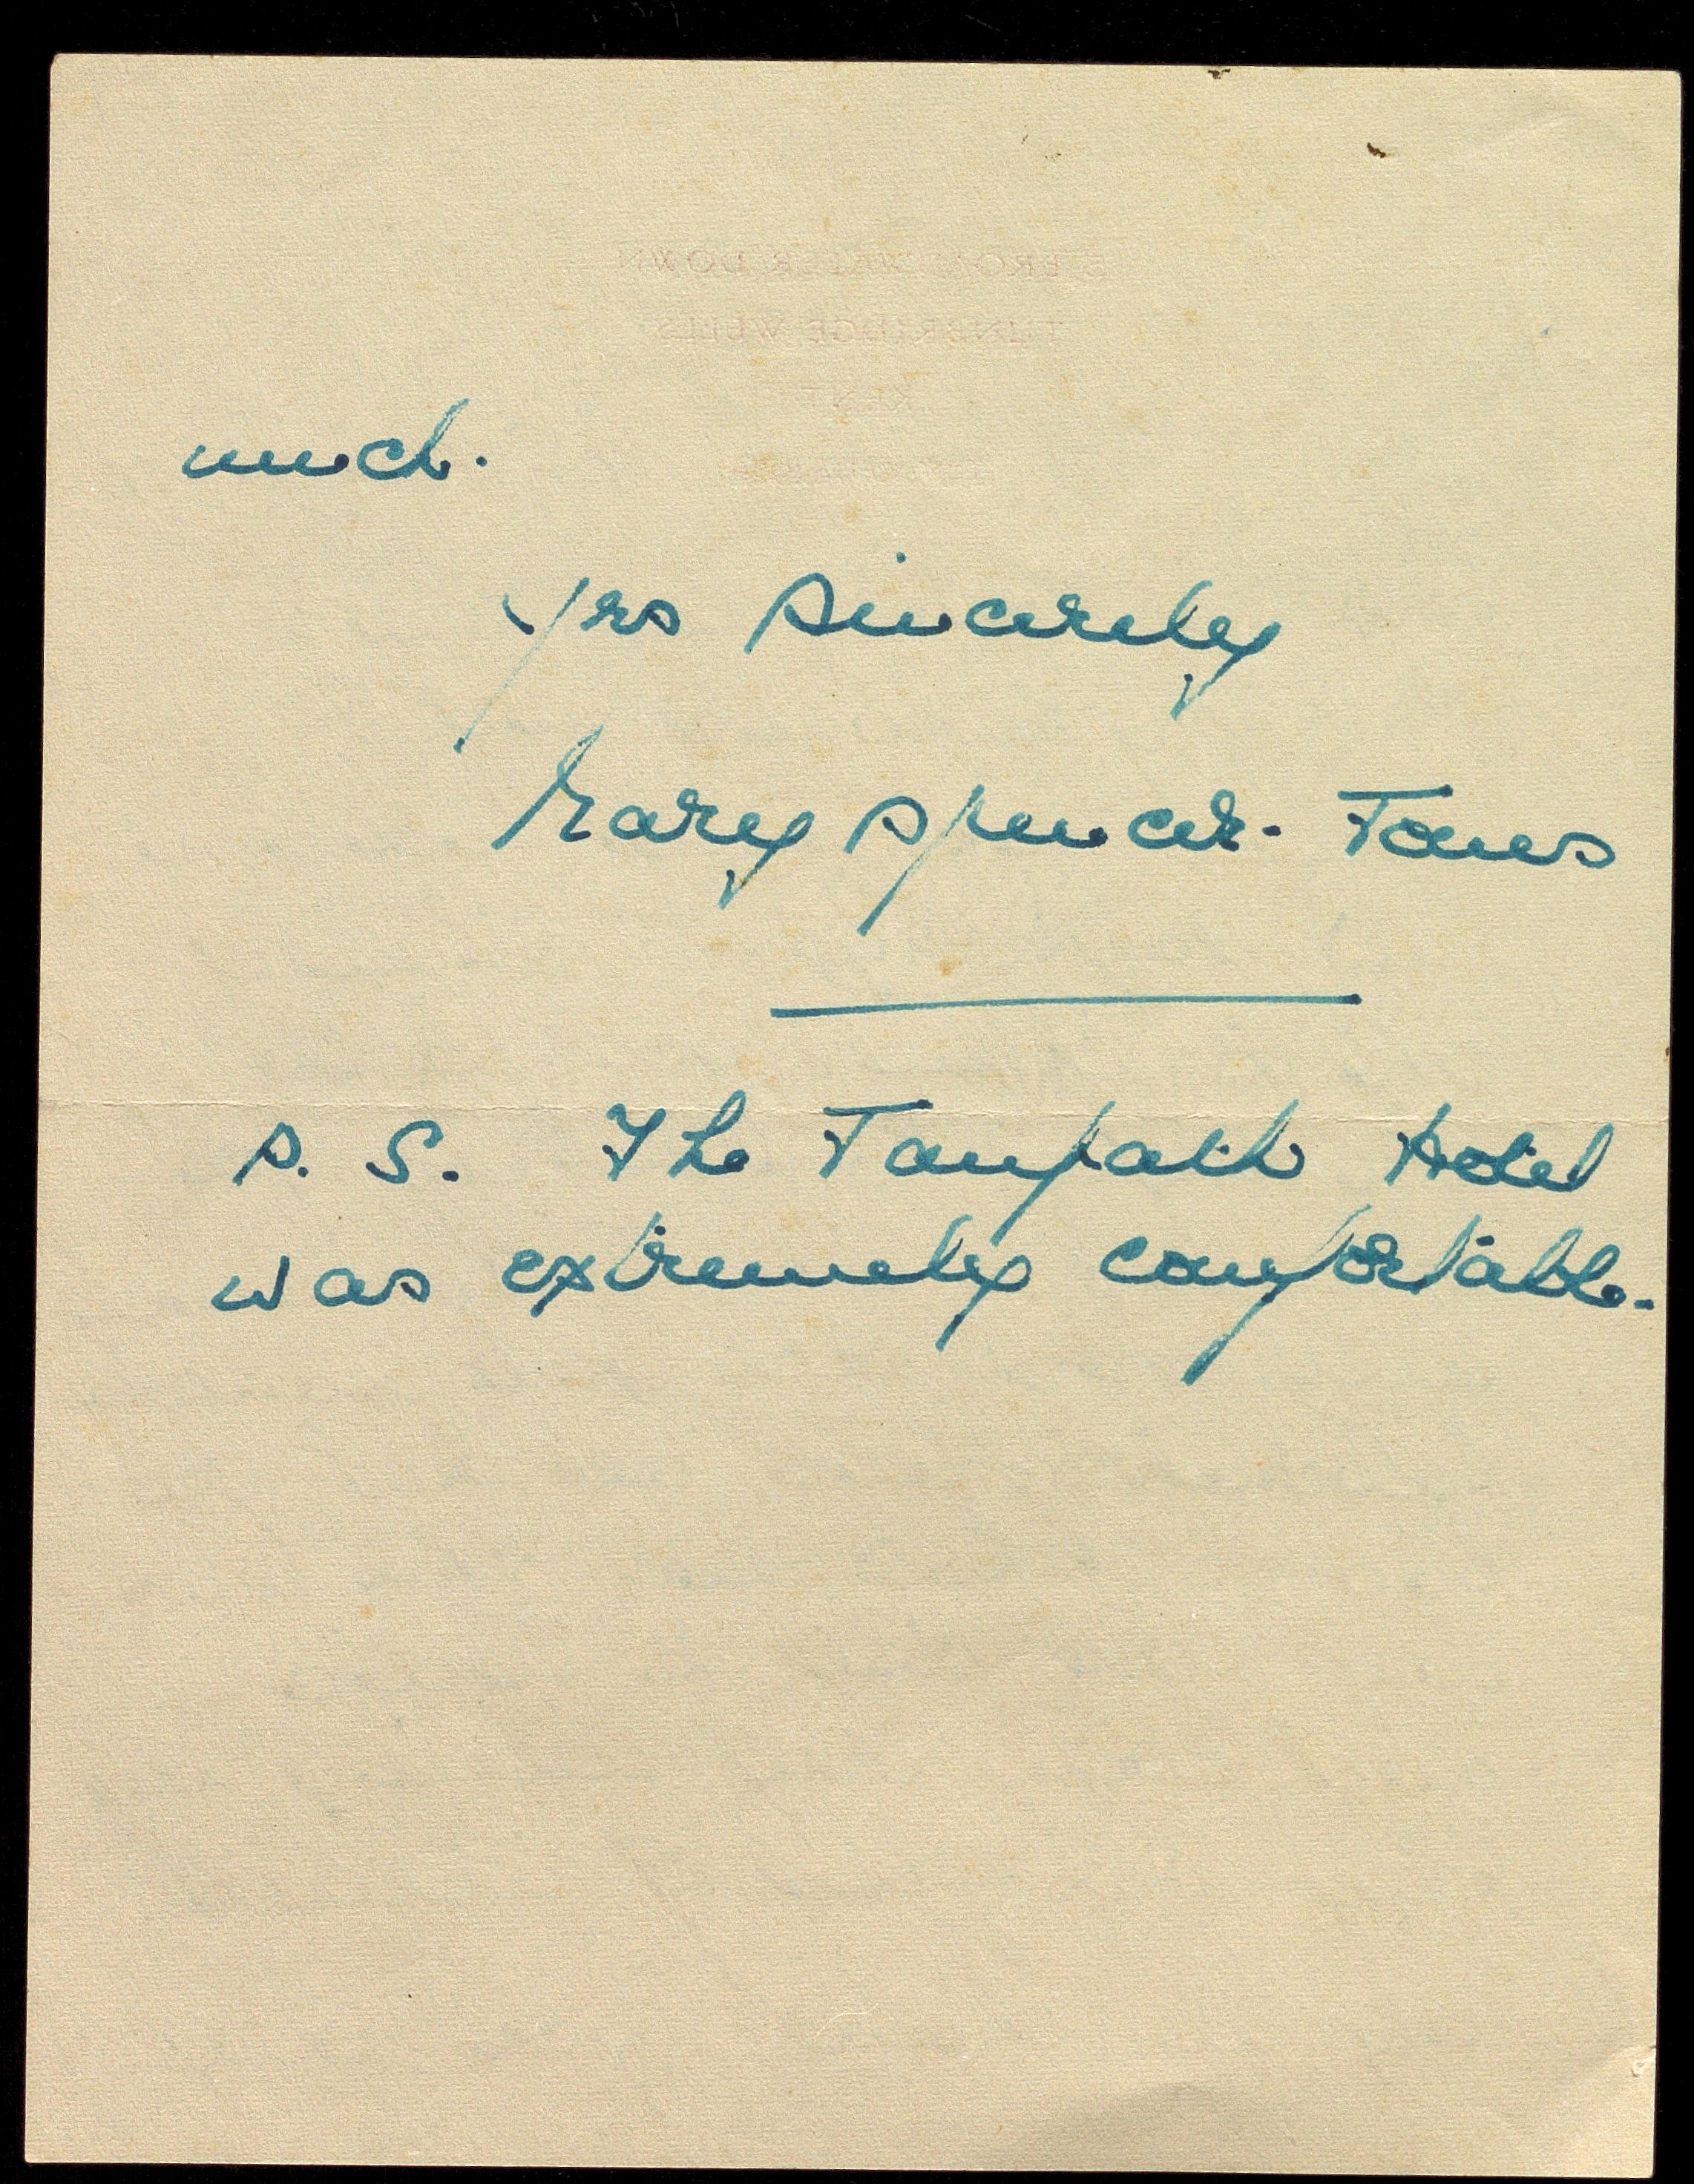 much.
Yrs sincerely
Mary Spencer-Jones
P. S. The Hotel
was extremely comfortable.